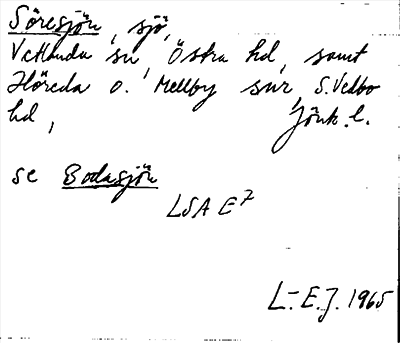 Söresjön, sjö,
Vetlanda sn, Östra hd, samt
Höreda o. Mellby snr, S. Vedbo
hd, Jönk. l.
se Bodasjön
LSA E7
L.-E.J. 1965